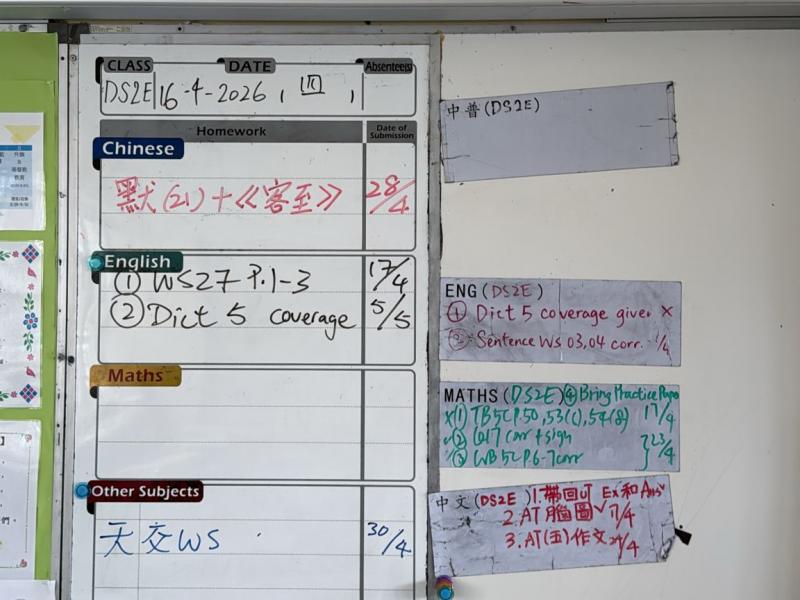 CLASS DATE Absentee(s)
DS2E 16-4-2026, 四,
Homework Date of Submission
Chinese
默(21)+《客至》 28/4
English
① WS27 P.1-3 17/4
② Dict 5 coverage 5/5
Maths
Other Subjects
天交WS 30/4
中普(DS2E)
ENG(DS2E)
① Dict 5 coverage given ×
② Sentence WS 03,04 corr. /4
MATHS(DS2E) ④ Bring Practice
(1) TB5C P.50, 53(c), 54(8) 17/4
(2) corr + sign
(3) WB 5C P.6-7 corr } 23/4
中文(DS2E) 1.帶回 Ex和Ans
2.AT腦圖 17/4
3.AT(五)作文 /4